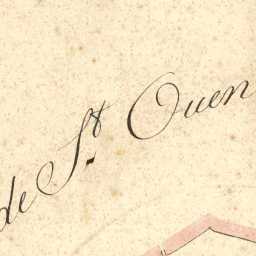 de St. Ouen